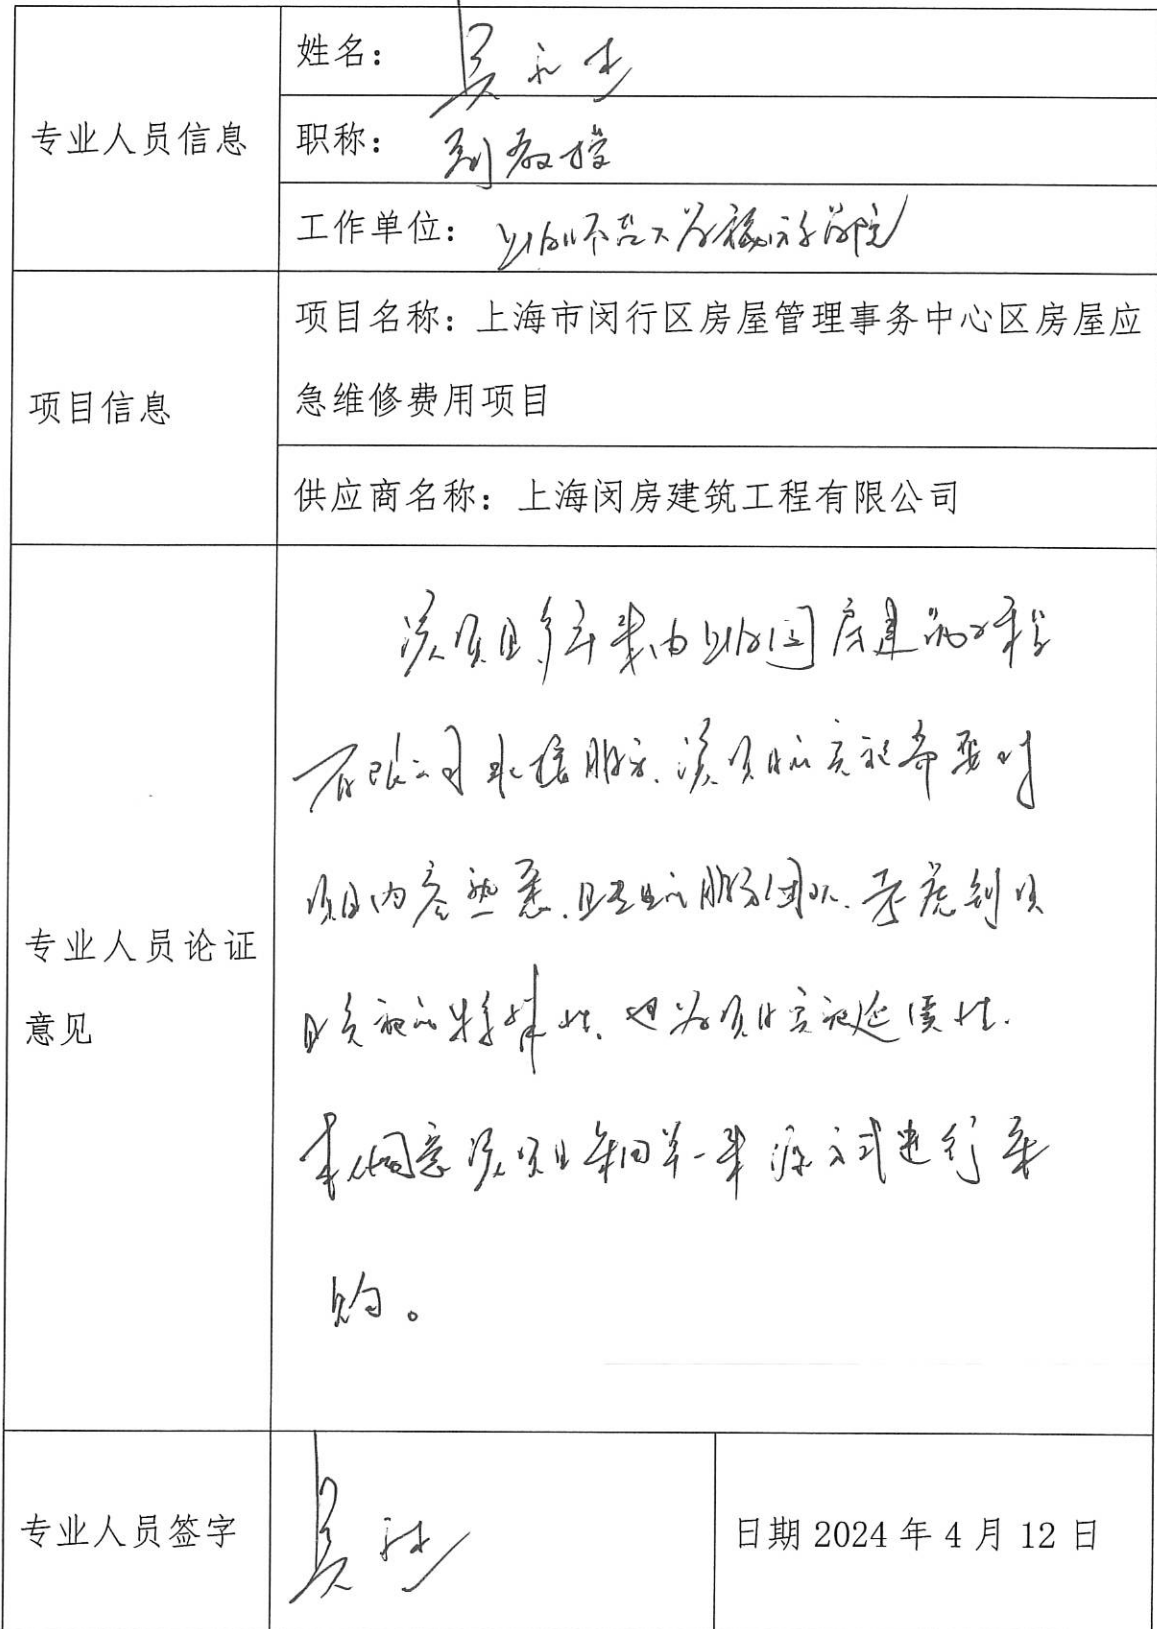 专业人员信息
姓名：吴永
职称：副教授
工作单位：上海 学院
项目信息
项目名称：上海市闵行区房屋管理事务中心区房屋应
急维修费用项目
供应商名称：上海闵房建筑工程有限公司
专业人员论证
意见
该项目多年来由上海闵房建筑工程
有限公司承接服务，该项目的实施需要对
项目内容熟悉，且 的服务团队，考虑到项
目实施的特殊性，也为项目实施延续性，
本人同意该项目采用单一来源方式进行采
购。
专业人员签字
吴
日期 2024 年 4 月 12 日